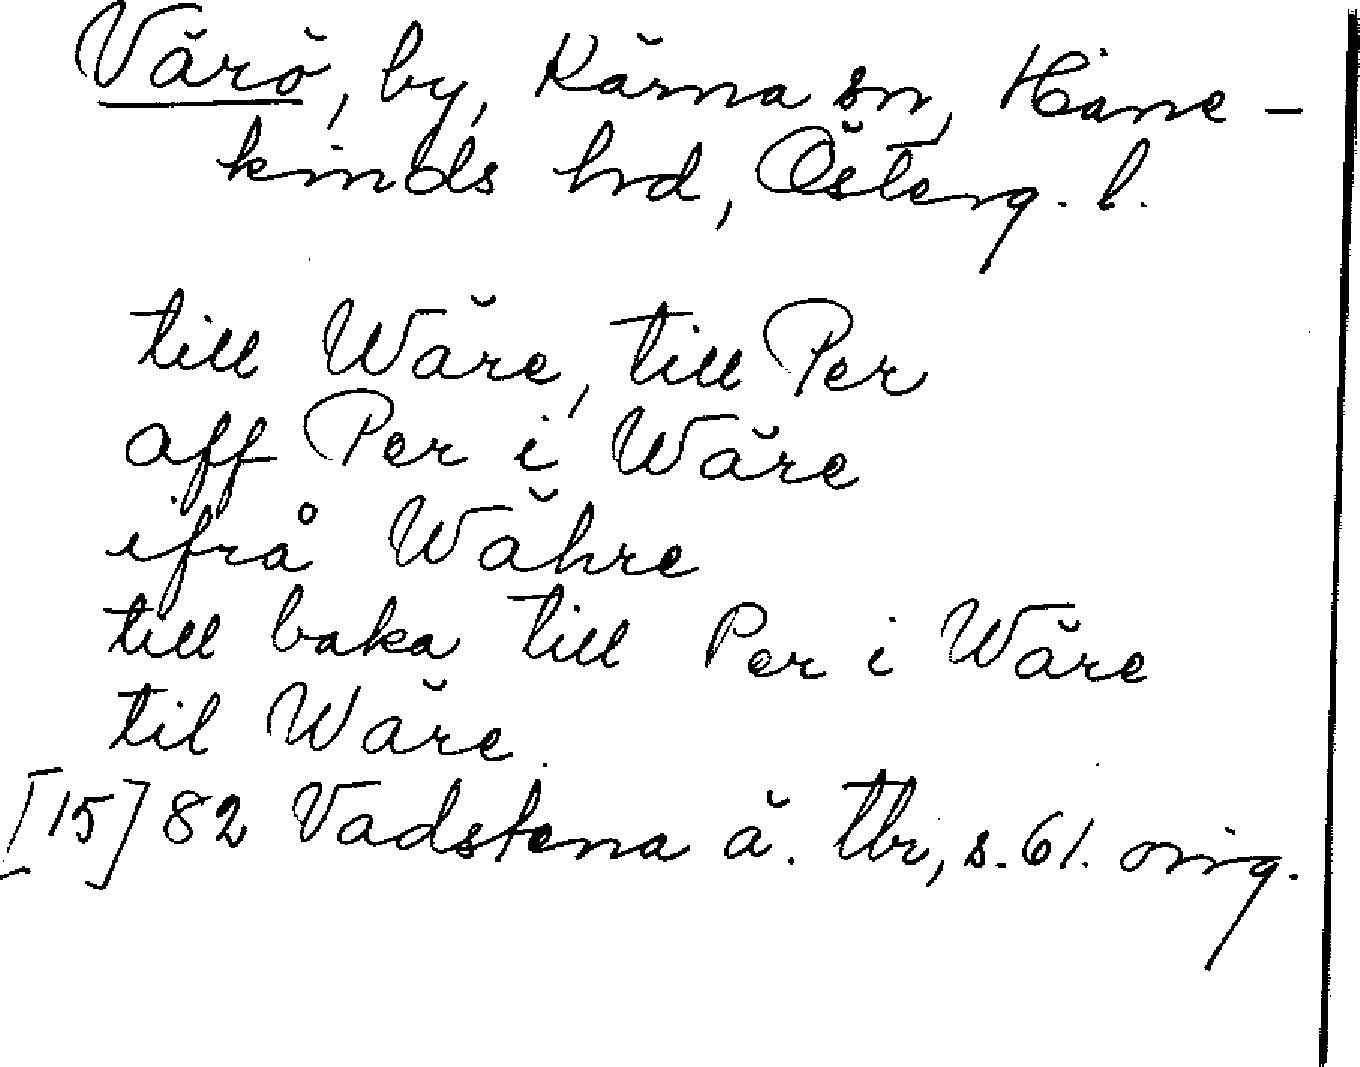 Värö, by, Kärna sn, Hane-
kinds hrd, Österg. l.
till Wäre, till Per
aff Per i Wäre
ifrå Währe
till baka till Per i Wäre
til Wäre
[15]82 Vadstena ä. tbr, s. 61. orig.